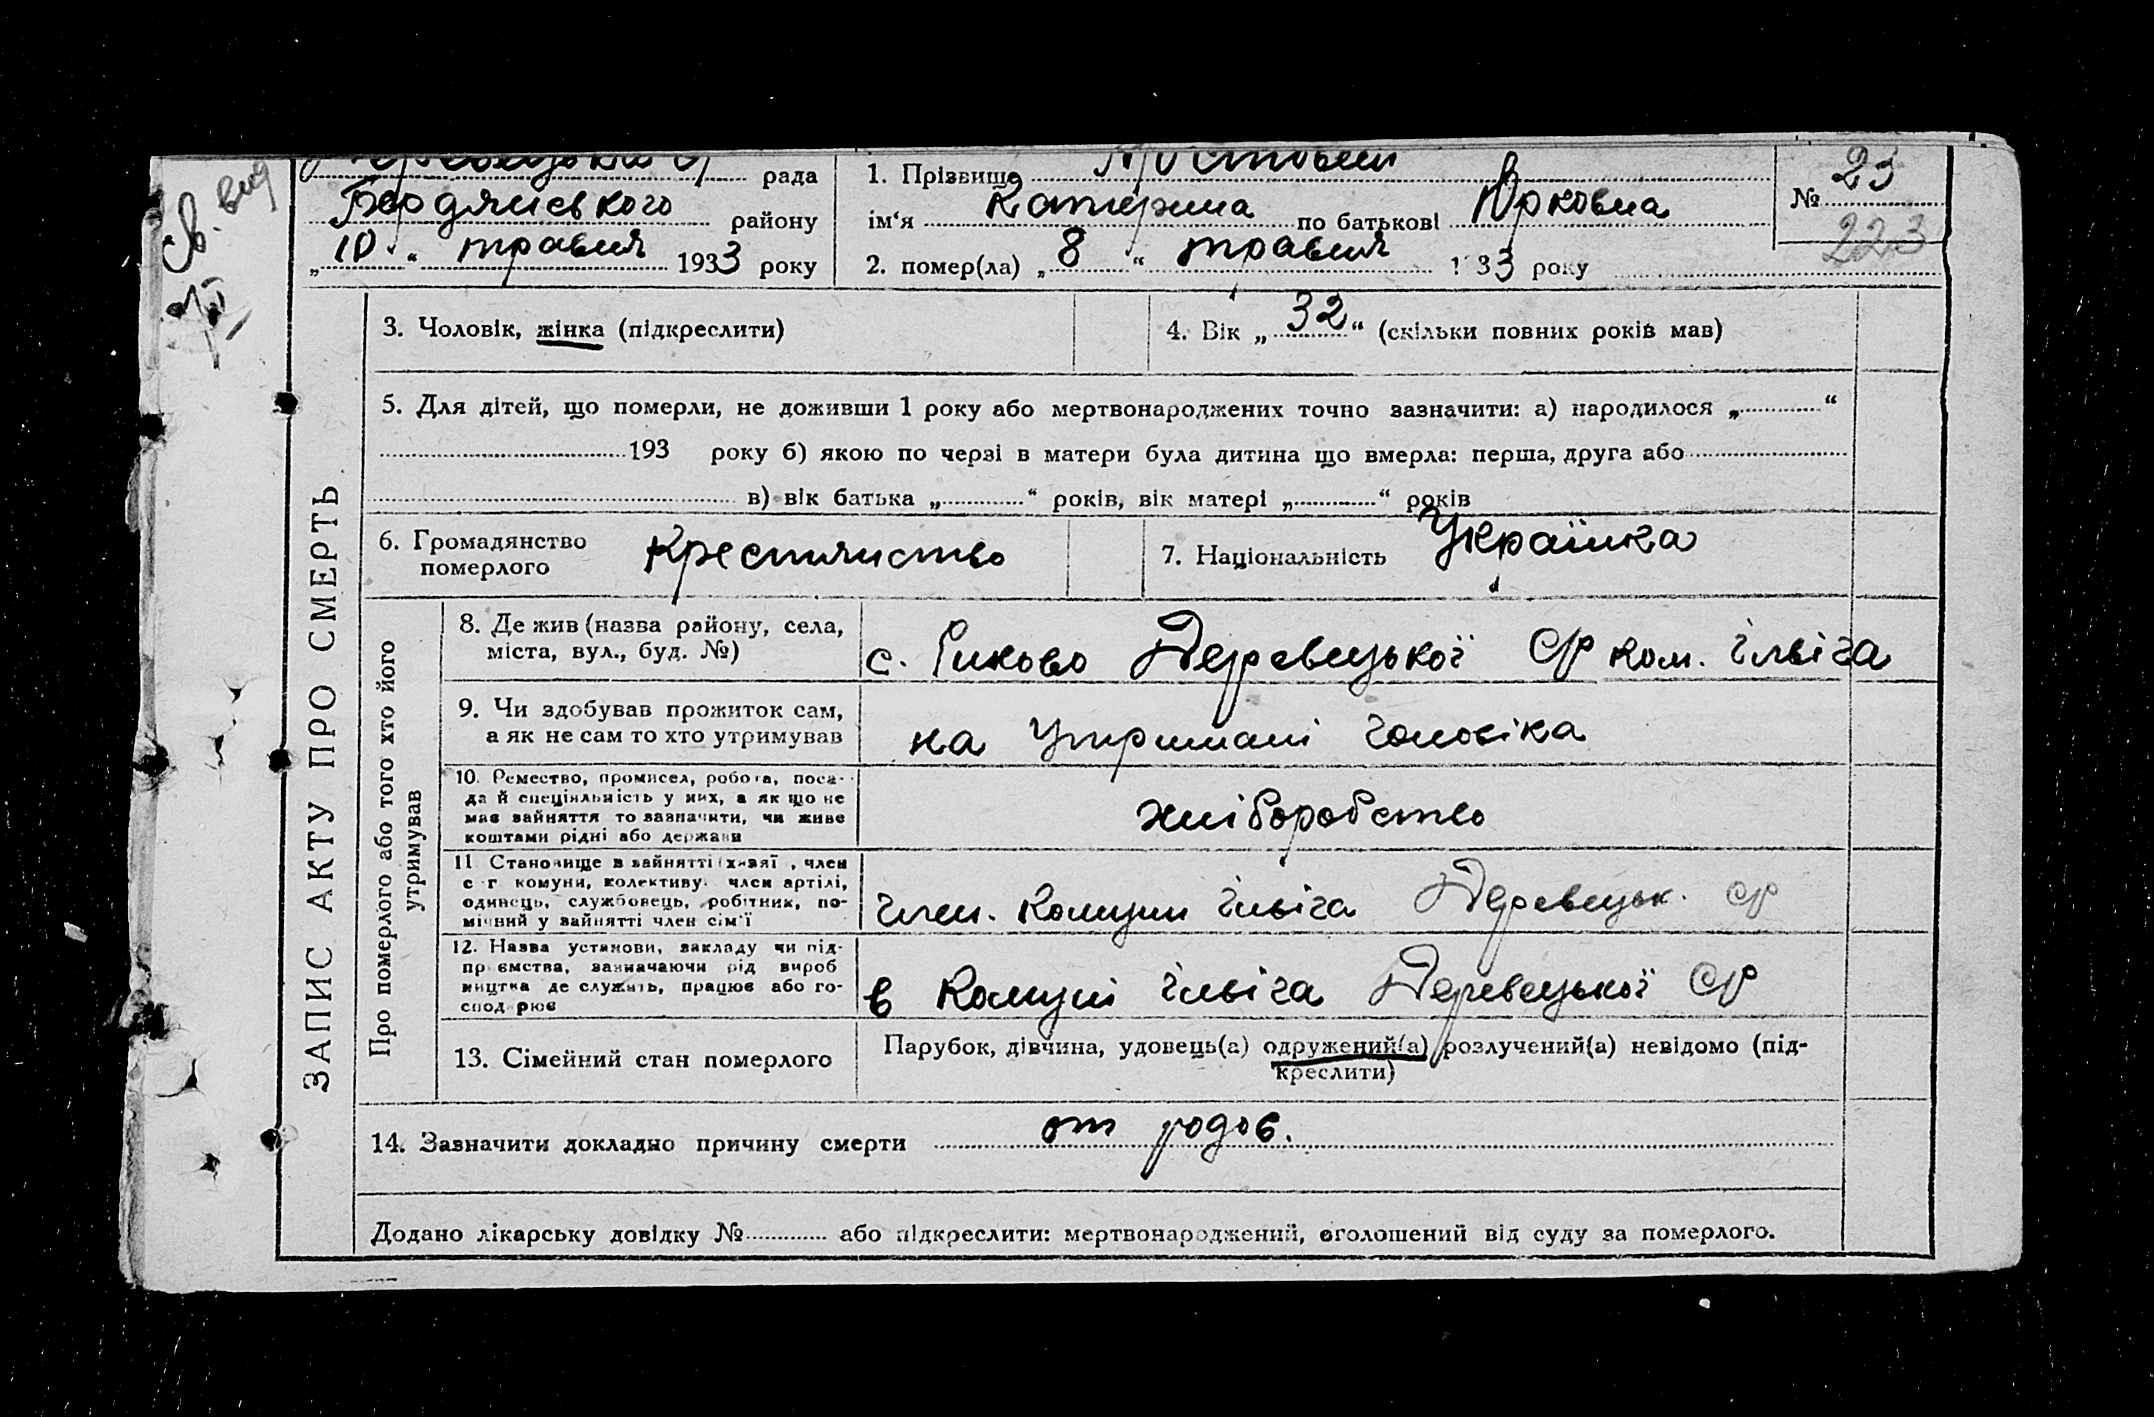 Св. вид
рада
Бердянського району
„10“ травня 1933 року
1. Прізвище
ім‘я Катерина по батькові Юрковна
2. помер(ла) „8“ травня 1933 року
№ 23
223
ЗАПИС АКТУ ПРО СМЕРТЬ
3. Чоловік, жінка (підкреслити)
4. Вік „32“ (скільки повних років мав)
5. Для дітей, що померли, не доживши 1 року або мертвонароджених точно зазначити: а) народилося „ “
193 року б) якою по черзі в матери була дитина що вмерла: перша, друга або
в) вік батька „ “ років, вік матері „ “ років
6. Громадянство померлого Крестянство
7. Національність Українка
Про померлого або того хто його утримував
8. Де жив (назва району, села,
міста, вул., буд. №)
с. Деревецької СР ком. Ілліча
9. Чи здобував прожиток сам,
а як не сам то хто утримував
на утримані чоловіка
10. Ремество, промисел, робота, поса-
да й спеціяльність у них, а як що не
має зайняття то зазначити, чи живе
коштами рідні або держави
хліборобство
11 Становище в зайнятті (хазяї, член
с-г комуни, колективу, член артілі,
одинець, службовець, робітник, по-
мічний у зайнятті член сім'ї
член. Комуни Ілліча Деревецьк. СР
12. Назва установи, закладу чи під-
приємства, зазначаючи рід вироб
ництва де служить, працює або го-
сподарює
в Комуні Ілліча Деревецької СР
13. Сімейний стан померлого
Парубок, дівчина, удовець(а) одружений(а) розлучений(а) невідомо (під-
креслити)
14. Зазначити докладно причину смерти от родов.
Додано лікарську довідку № або підкреслити: мертвонароджений, оголошений від суду за померлого.